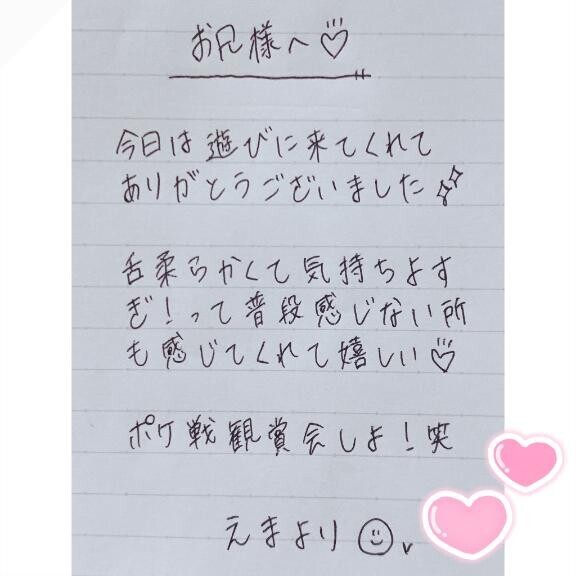 お兄様へ♡
今日は遊びに来てくれて
ありがとうございました
舌柔らかくて気持ちよす
ぎ！って普段感じない所
も感じてくれて嬉しい♡
ポケ戦観賞会しよ！笑
えまより